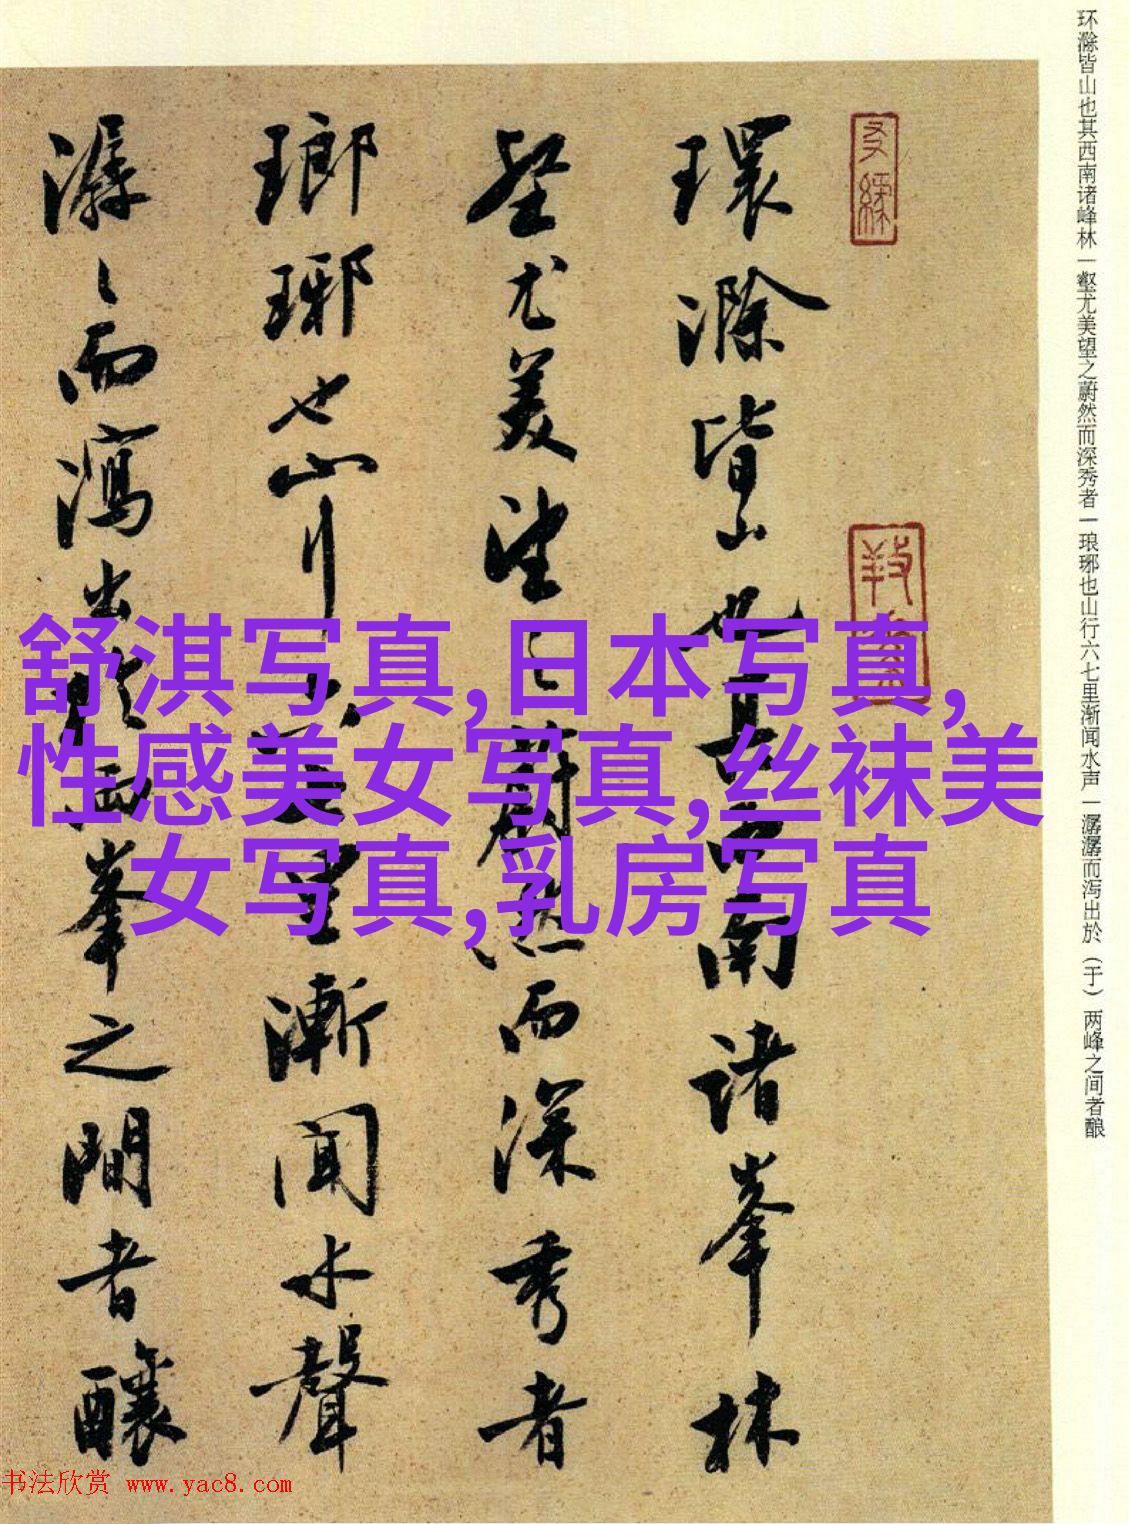 环滁皆山也其西南诸峰林一壑尤美望之蔚然而深秀者一琅琊也山行六七里渐闻水声一潺潺而泻出於（于）两峰之间者酿
環滁皆山也其西南諸峯林
壑尤美望之蔚然而深秀者
瑯琊也山行六七里漸聞水聲
潺々而瀉出於兩峯之間者釀
舒淇写真,日本写真,
性感美女写真,丝袜美
女写真,乳房写真
书法欣赏 www.yac8.com